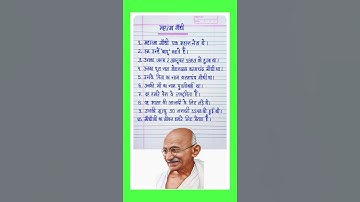 महात्मा गाँधी
1. महात्मा गाँधी एक महान नेता थे।
2. हम उन्हें 'बापू' कहते हैं।
3. उनका जन्म 2 अक्टूबर 1869 को हुआ था।
4. उनका पूरा नाम मोहनदास करमचंद गाँधी था।
5. उनके पिता का नाम करमचंद गाँधी था।
6. उनकी माँ का नाम पुतलीबाई था।
7. वह हमारे देश के राष्ट्रपिता हैं।
8. वह भारत की आजादी के लिए लड़े थे।
9. उनकी मृत्यु 30 जनवरी 1948 को हुई थी।
10. गाँधीजी का जीवन हमारे लिए प्रेरणा है।